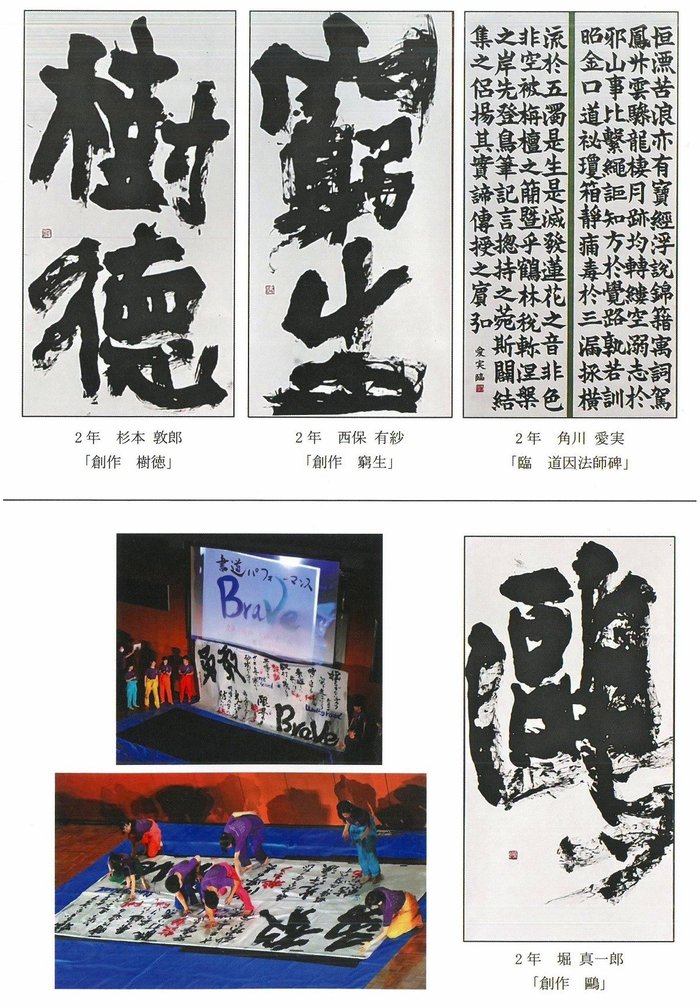 樹
徳
窮
生
恒漂苦浪亦有寶經浮說錦籍寓詞駕
鳳升雲驂龍棲月跡均轉縷空溺志於
邪山事比繫繩詎知方於覺路孰若訓
昭金口道祕瓊箱靜痛毒於三漏拯橫
流於五濁是生是滅發蓮花之音非色
非空被栴檀之簡暨乎鶴林稅軫涅槃
之岸先登鳥筆記言揔持之菀斯闢結
集之侶揚其實諦傳授之賓弘
愛実臨
2年 杉本 敦郎
「創作 樹徳」
2年 西保 有紗
「創作 窮生」
2年 角川 愛実
「臨 道因法師碑」
書道パフォーマンス
Brave
Brave
鷗
2年 堀 真一郎
「創作 鷗」